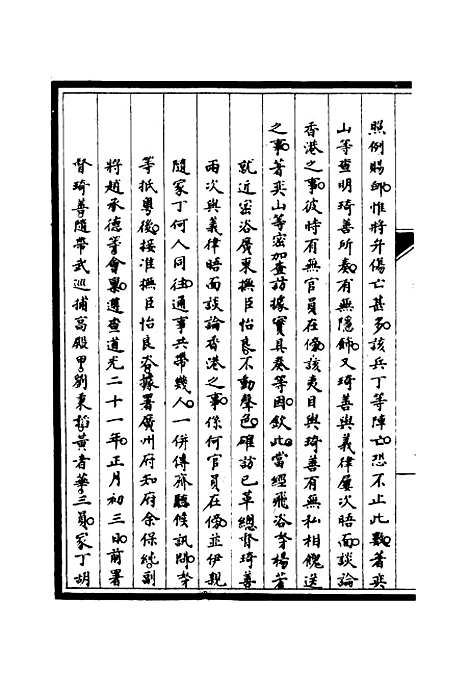 照例賜卹惟將弁傷亡甚多該兵丁等陣亡恐不止此數著奕
山等查明琦善所奏有無隱飾又琦善與義律屢次晤面談論
香港之事彼時有無官員在傍該夷目與琦善有無私相餽送
之事著奕山等密加查訪據實具奏等因欽此當經飛咨楊芳
就近密咨廣東撫臣怡良不動聲色確訪已革總督琦善
兩次與義律晤面談論香港之事係何官員在傍並伊親
隨家丁何人同往通事共帶幾人一併傳齊聽候訊問
等抵粵後接准撫臣怡良咨據署廣州府知府余保純副
將趙承德等會稟遵查道光二十一年正月初三日前署
督琦善隨帶武巡捕 殿甲劉東 黃者華三員家丁胡